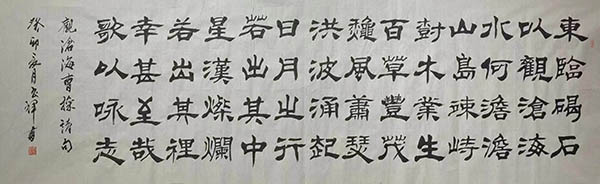 東臨碣石
以觀滄海
水何澹澹
山島竦峙
樹木叢生
百草豐茂
龝風蕭瑟
洪波涌起
日月之行
若出其中
星漢燦爛
若出其裡
幸甚至哉
歌以咏志
觀滄海曹操詩句
癸卯月輝書